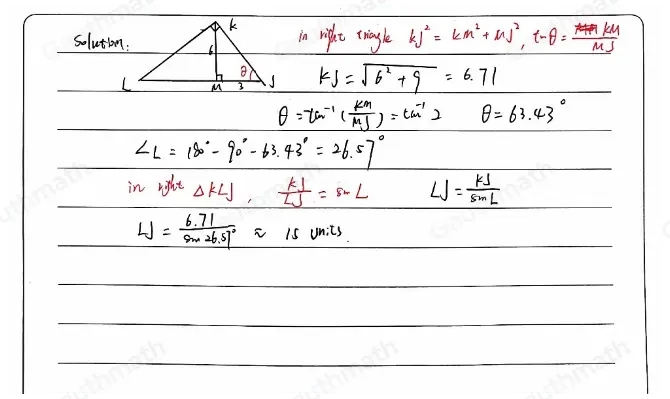 Solution:
K
6
θ
L
M
3
J
in right triangle KJ² = KM² + MJ², tanθ = KM/MJ
KJ = √(6² + 9) = 6.71
θ = tan⁻¹(KM/MJ) = tan⁻¹ 2 θ = 63.43°
∠L = 180° - 90° - 63.43° = 26.57°
in right △KLJ, KJ/LJ = sin L LJ = KJ/sin L
LJ = 6.71/sin 26.57° ≈ 15 units.
Gauthmath